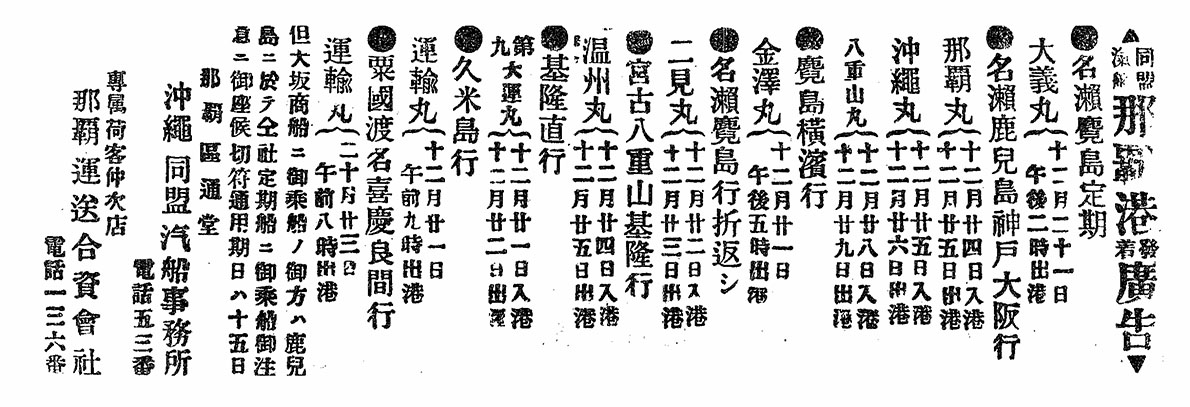 ▲同盟汽船那覇港發着廣告▼
●名瀨麑島定期
大義丸 十二月二十一日
午後二時出港
●名瀨鹿兒島神戸大阪行
那覇丸 十二月廿四日入港
十二月廿五日出港
沖繩丸 十二月廿五日入港
十二月廿六日出港
八重山丸 十二月廿八日入港
十二月廿九日出港
●麑島橫濱行
金澤丸 十二月廿一日
午後五時出港
●名瀨麑島行折返シ
二見丸 十二月廿二日入港
十二月廿三日出港
●宮古八重山基隆行
温州丸 十二月廿四日入港
十二月廿五日出港
●基隆直行
第九大運丸 十二月廿一日入港
十二月廿二日出港
●久米島行
運輸丸 十二月廿一日
午前九時出港
●粟國渡名喜慶良間行
運輸丸 二十月廿三日
午前八時出港
但大坂商船ニ御乘船ノ御方ハ鹿兒
島ニ於テ仝社定期船ニ御乘船御注
意ニ御座候切符通用期日ハ十五日
那覇區通堂
沖繩同盟汽船事務所
電話五三番
專属荷客仲次店
那覇運送合資會社
電話一三六番